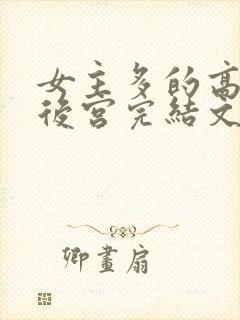 女主多的高
後宮完結文
卿畫扇